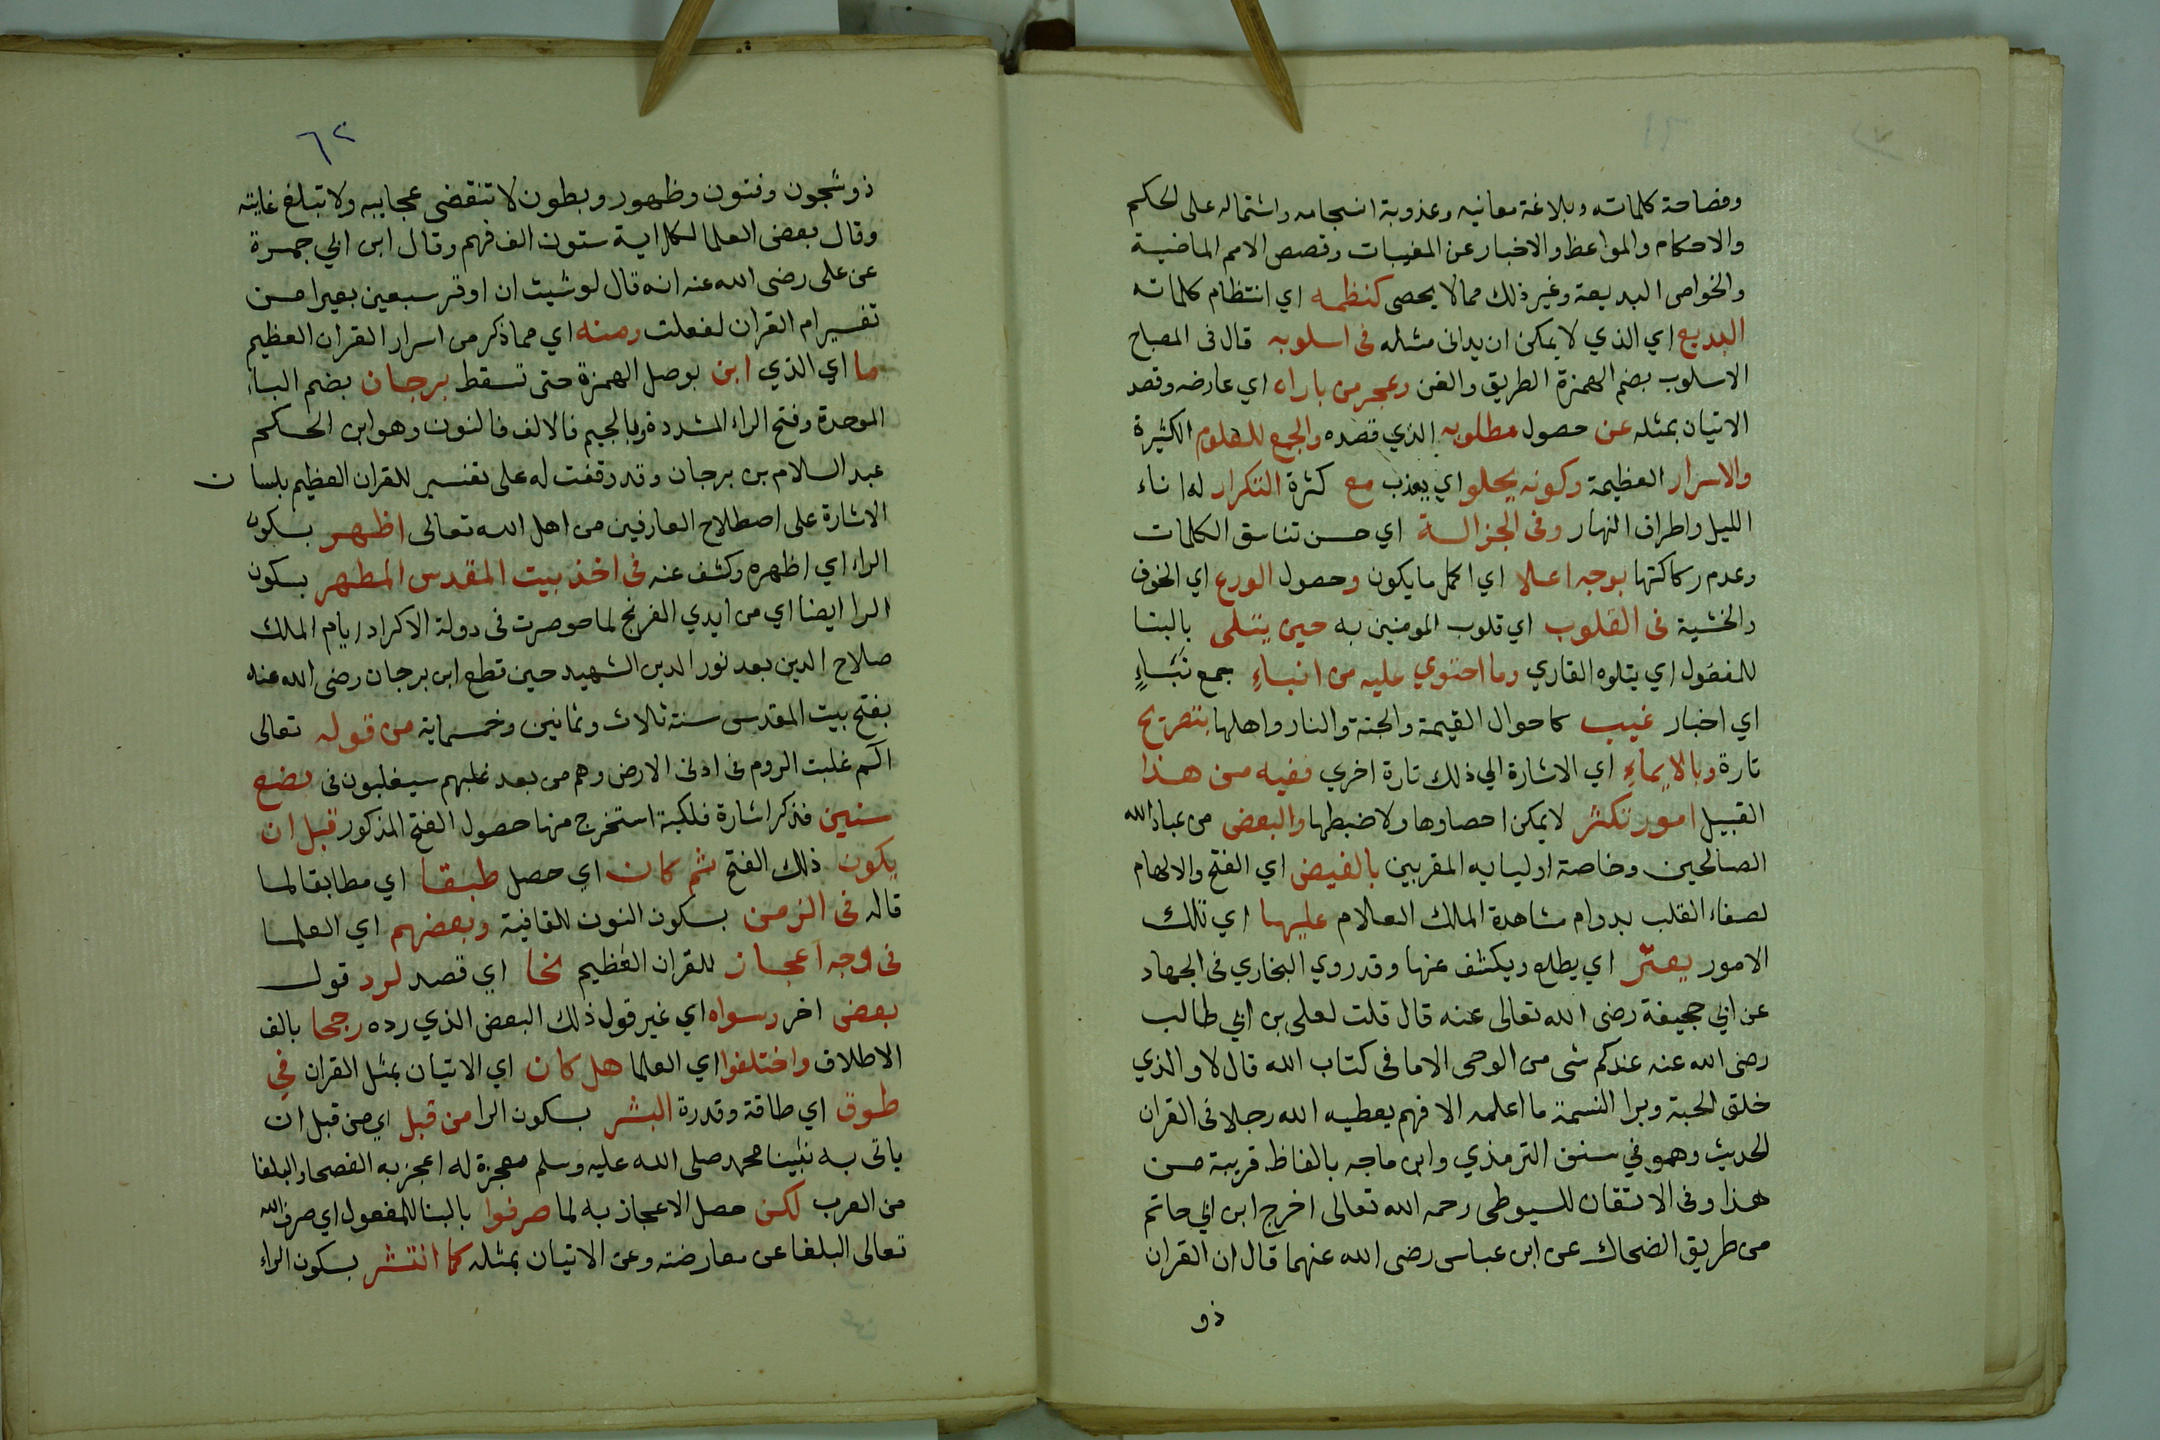 وفصاحة كلماته وبلاغة معانيه وعذوبة انسجامه واشتماله على الحكم
والاحكام والمواعظ والاخبار عن المغيبات وقصص الامم الماضية
والخواص البديعة وغير ذلك مما لا يحصى كنظمه اي انتظام كلماته
البديع اي الذي لا يمكن ان يدانى مثله فى اسلوبه قال فى المصباح
الاسلوب بضم الهمزة الطريق والفن وعجز من باراه اي عارضه وقصد
الاتيان بمثله عن حصول مطلوبه الذي قصده والجمع للعلوم الكثيرة
والاسرار العظيمة وكونه يحلو اي يعذب مع كثرة التكرار له اناء
الليل واطراف النهار وفى الجزالة اي حسن تناسق الكلمات
وعدم ركاكتها بوجه اعلا اي اكمل ما يكون وحصول الورع اي الخوف
والخشية فى القلوب اي قلوب المومنين به حين يتلى بالبنا
للمفعول اي يتلوه القاري وما احتوي عليه من انباءِ جمع نَبَاءٍ
اي اخبار غيب كاحوال القيمة والجنة والنار واهلها بتصريح
تارة وبالايماءِ اي الاشارة الي ذلك تارة اخري ففيه من هذا
القبيل امور تكثر لا يمكن احصاوها ولا ضبطها والبعض من عباد الله
الصالحين وخاصة اوليايه المقربين بالفيض اي الفتح والالهام
لصفاء القلب بدوام مشاهدة الملك العلام عليها اي تلك
الامور يعثر اي يطلع ويكشف عنها وقد روي البخاري فى الجهاد
عن ابي جحيفة رضى الله تعالى عنه قال قلت لعلى بن ابي طالب
رضى الله عنه عندكم شى من الوحى الا ما فى كتاب الله قال لا والذي
خلق الحبة وبرا النسمة ما اعلمه الا فهم يعطيه الله رجلا فى القران
الحديث وهو في سنن الترمذي وابن ماجه بالفاظ قريبة من
هذا وفى الاتقان للسيوطى رحمه الله تعالى اخرج ابن ابي حاتم
من طريق الضحاك عن ابن عباس رضى الله عنهما قال ان القران
ذو
٦٢
ذو شجون وفنون وظهور وبطون لا تنقضى عجايبه ولا تبلغ غايته
وقال بعض العلما لكل اية ستون الف فهم وقال ابن ابي جمرة
عن على رضى الله عنه انه قال لو شيت ان اوقر سبعين بعيرا من
تفسير ام القران لفعلت ومنه اي مما ذكر من اسرار القران العظيم
ما اي الذي ابن بوصل الهمزة حتى تسقط برجان بضم الباء
الموحدة وفتح الراء المشددة وبالجيم فالالف فالنون وهو ابن الحكم
عبد السلام بن برجان وقد وقفت له على تفسير للقران العظيم بلسان
الاشارة على اصطلاح العارفين من اهل الله تعالى اظهر بسكون
الراء اي اظهره وكشف عنه فى اخذ بيت المقدس المطهر بسكون
الرا ايضا اي من ايدي الفرنج لما حوصرت فى دولة الاكراد ايام الملك
صلاح الدين بعد نور الدين الشهيد حين قطع ابن برجان رضى الله عنه
بفتح بيت المقدس سنة ثلاث وثمانين وخمسماية من قوله تعالى
الٓم غلبت الروم فى ادنى الارض وهم من بعد غلبهم سيغلبون فى بضع
سنين فذكر اشارة فلكية استخرج منها حصول الفتح المذكور قبل ان
يكون ذلك الفتح ثم كان اي حصل طبقا اي مطابقا لما
قاله فى الزمن بسكون النون للقافية وبعضهم اي العلما
فى وجه اعجاز للقران العظيم نحا اي قصد لرد قول
بعض اخر وسواه اي غير قول ذلك البعض الذي رده رجحا بالف
الاطلاق واختلفوا اي العلما هل كان اي الاتيان بمثل القران في
طوق اي طاقة وقدرة البشر بسكون الرا من قبل اي من قبل ان
ياتى به نبينا محمد صلى الله عليه وسلم معجزة له اعجز به الفصحا والبلغا
من العرب لكن حصل الاعجاز به لما صرفوا بالبنا للمفعول اي صرف الله
تعالى البلغا عن معارضته وعن الاتيان بمثله كما انتشر بسكون الراء